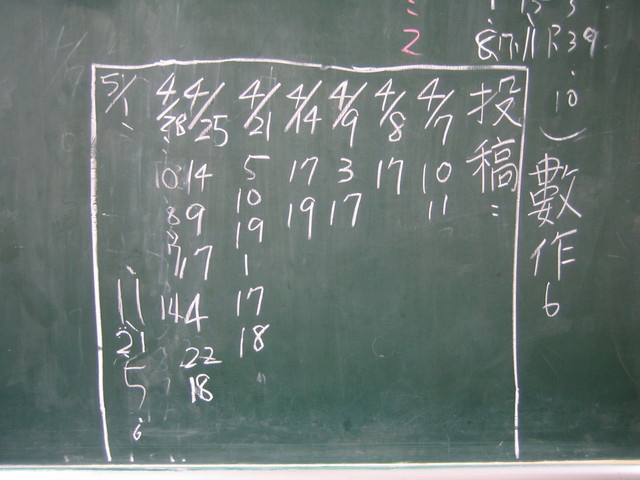 投稿:
4/7 10 11
4/8 17
4/9 3 17
4/14 17 19
4/21 5 10 19 1 17 18
4/25 14 9 17 4 22 18
4/28 10 8 7 14
5/1 11 21 5 6
數作6
10)
2